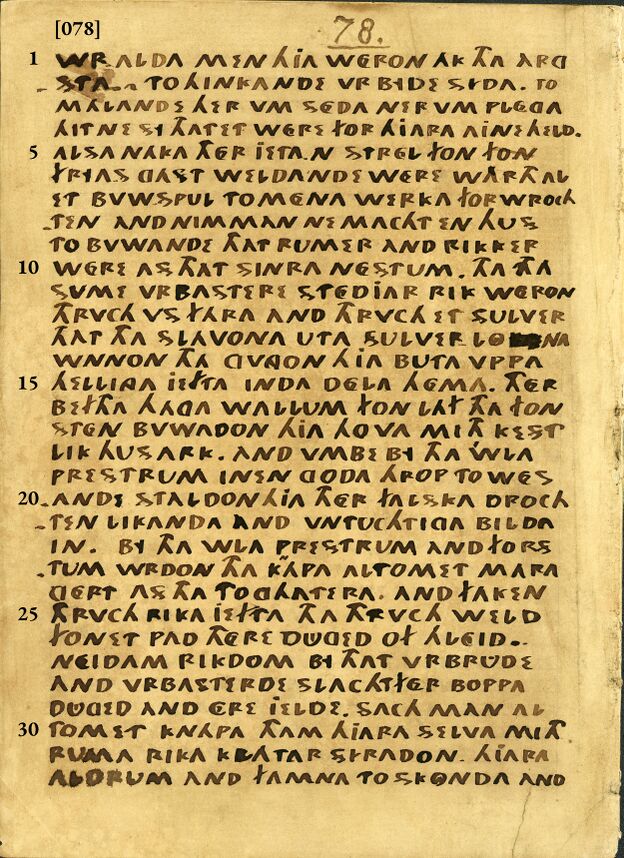 [078]
78.
1 WR.ALDA MEN HIA WERON AK THA ARG
STA.. TO HINKANDE VR BYDE SYDA. TO
MALANDE HER VM SEDA NER VM PLEGA
HIT NE SY THATET WERE FOR HIARA AINE HELD.
5 ALSA NAKA THER IEFTA.N STREL FON FON
FRYAS GAST WELDANDE WERE WARTH AL
ET BUWSPUL TO MENA WERKA FORWROCH
TEN AND NIMMAN NE MACHT EN HUS
TO BUWANDE THAT RUMER AND RIKKER
10 WERE AS THAT SINRA NESTUM. THA THA
SUME VRBASTERE STEDIAR RIK WERON
THRUCH US FARA AND THRUCH ET SULVER
THAT THA SLAVONA UTA SULVER LONA
WNNON THA GUNGON HIA BUTA VPPA
15 HELLINGA IEFTA INDA DELA HEMA. THER
BEFTHA HAGA WALLUM FON LAF THA FON
STEN BUWADON HIA HOVA MITH KEST
LIK HUSARK. AND VMBE BY THA WLA
PRESTRUM INEN GODA HROP TO WES
20 ANDE STALDON HIA THER FALSKA DROCH
TEN LIKANDA AND VNTUCHTIGA BILDA
IN. BY THA WLA PRESTRUM AND FORS
TUM WRDON THA KNAPA ALTOMET MARA
GERT AS THA TOGHATERA. AND FAKEN
25 THRUCH RIKA IEFTA THA THRUCH WELD
FONET PAD THERE DUGED OF HLEID..
NEIDAM RIKDOM BY THAT VRBRUDE
AND VRBASTERDE SLACHT FER BOPPA
DUGED AND ERE IELDE. SACH MAN AL
30 TOMET KNAPA THAM HIARA SELVA MITH
RUMA RIKA KLATAR SYRADON. HIARA
ALDRUM AND FAMNA TO SKONDA AND